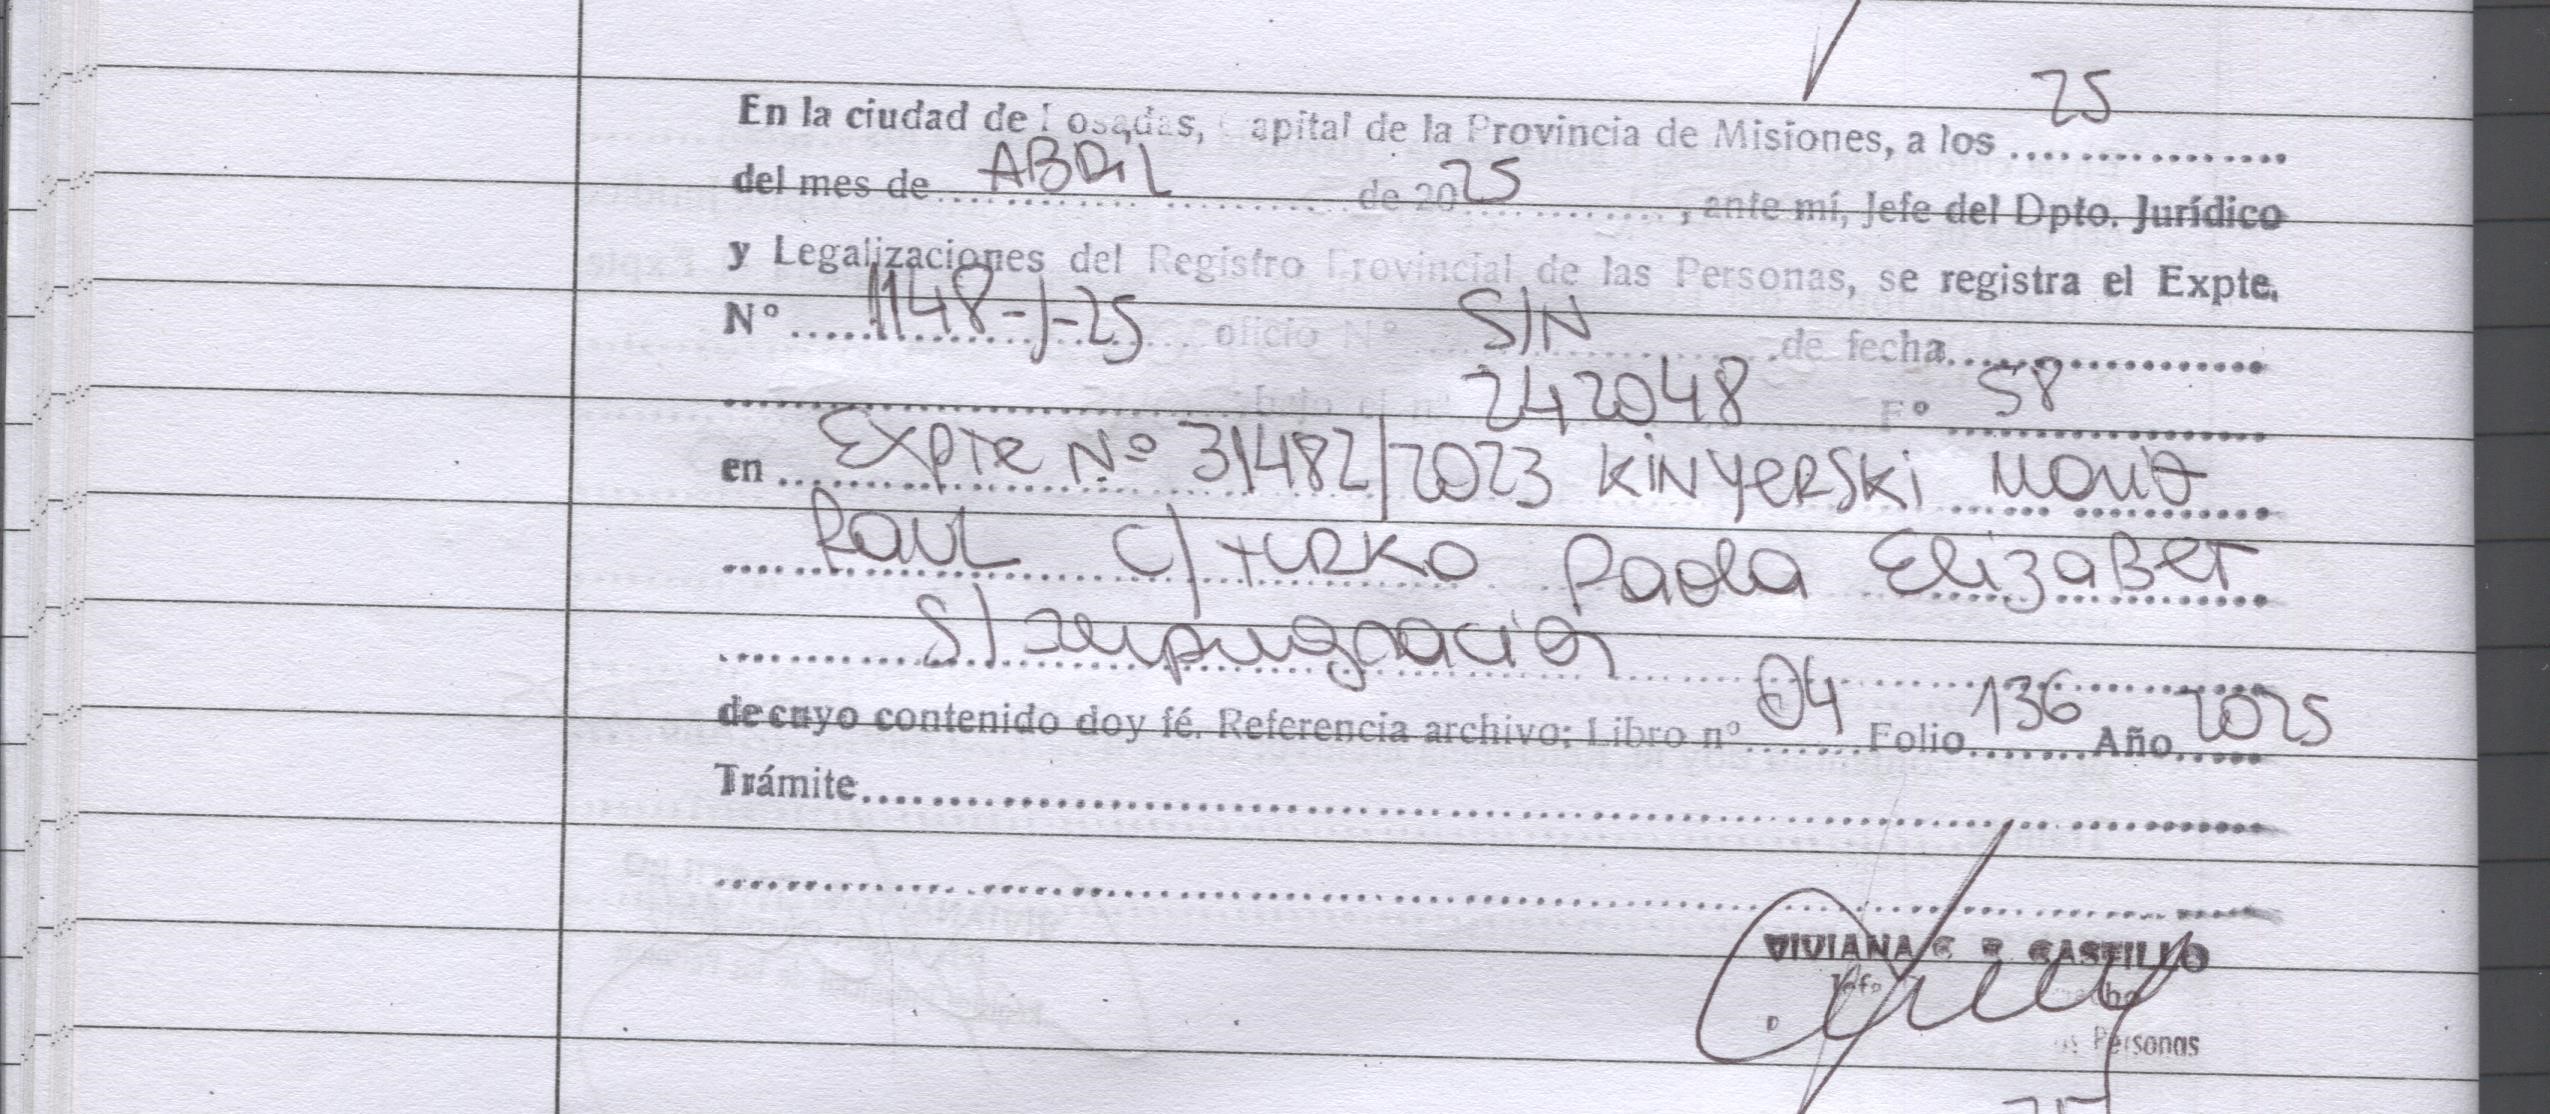 25
En la ciudad de Posadas, Capital de la Provincia de Misiones, a los ................
del mes de ABRIL de 2025, ante mí, Jefe del Dpto. Jurídico
y Legalizaciones del Registro Provincial de las Personas, se registra el Expte.
N° 1148-J-25 oficio N° S/N de fecha
bajo el n° 242048 F° 58
en Expte Nº 31482/2023 KINYERSKI
RAUL C/ TURKO Paola Elizabet
S/ Impugnación
de cuyo contenido doy fé. Referencia archivo: Libro n° 04 Folio 136 Año 2025
Trámite
VIVIANA CASTILLO
Jefe
Personas